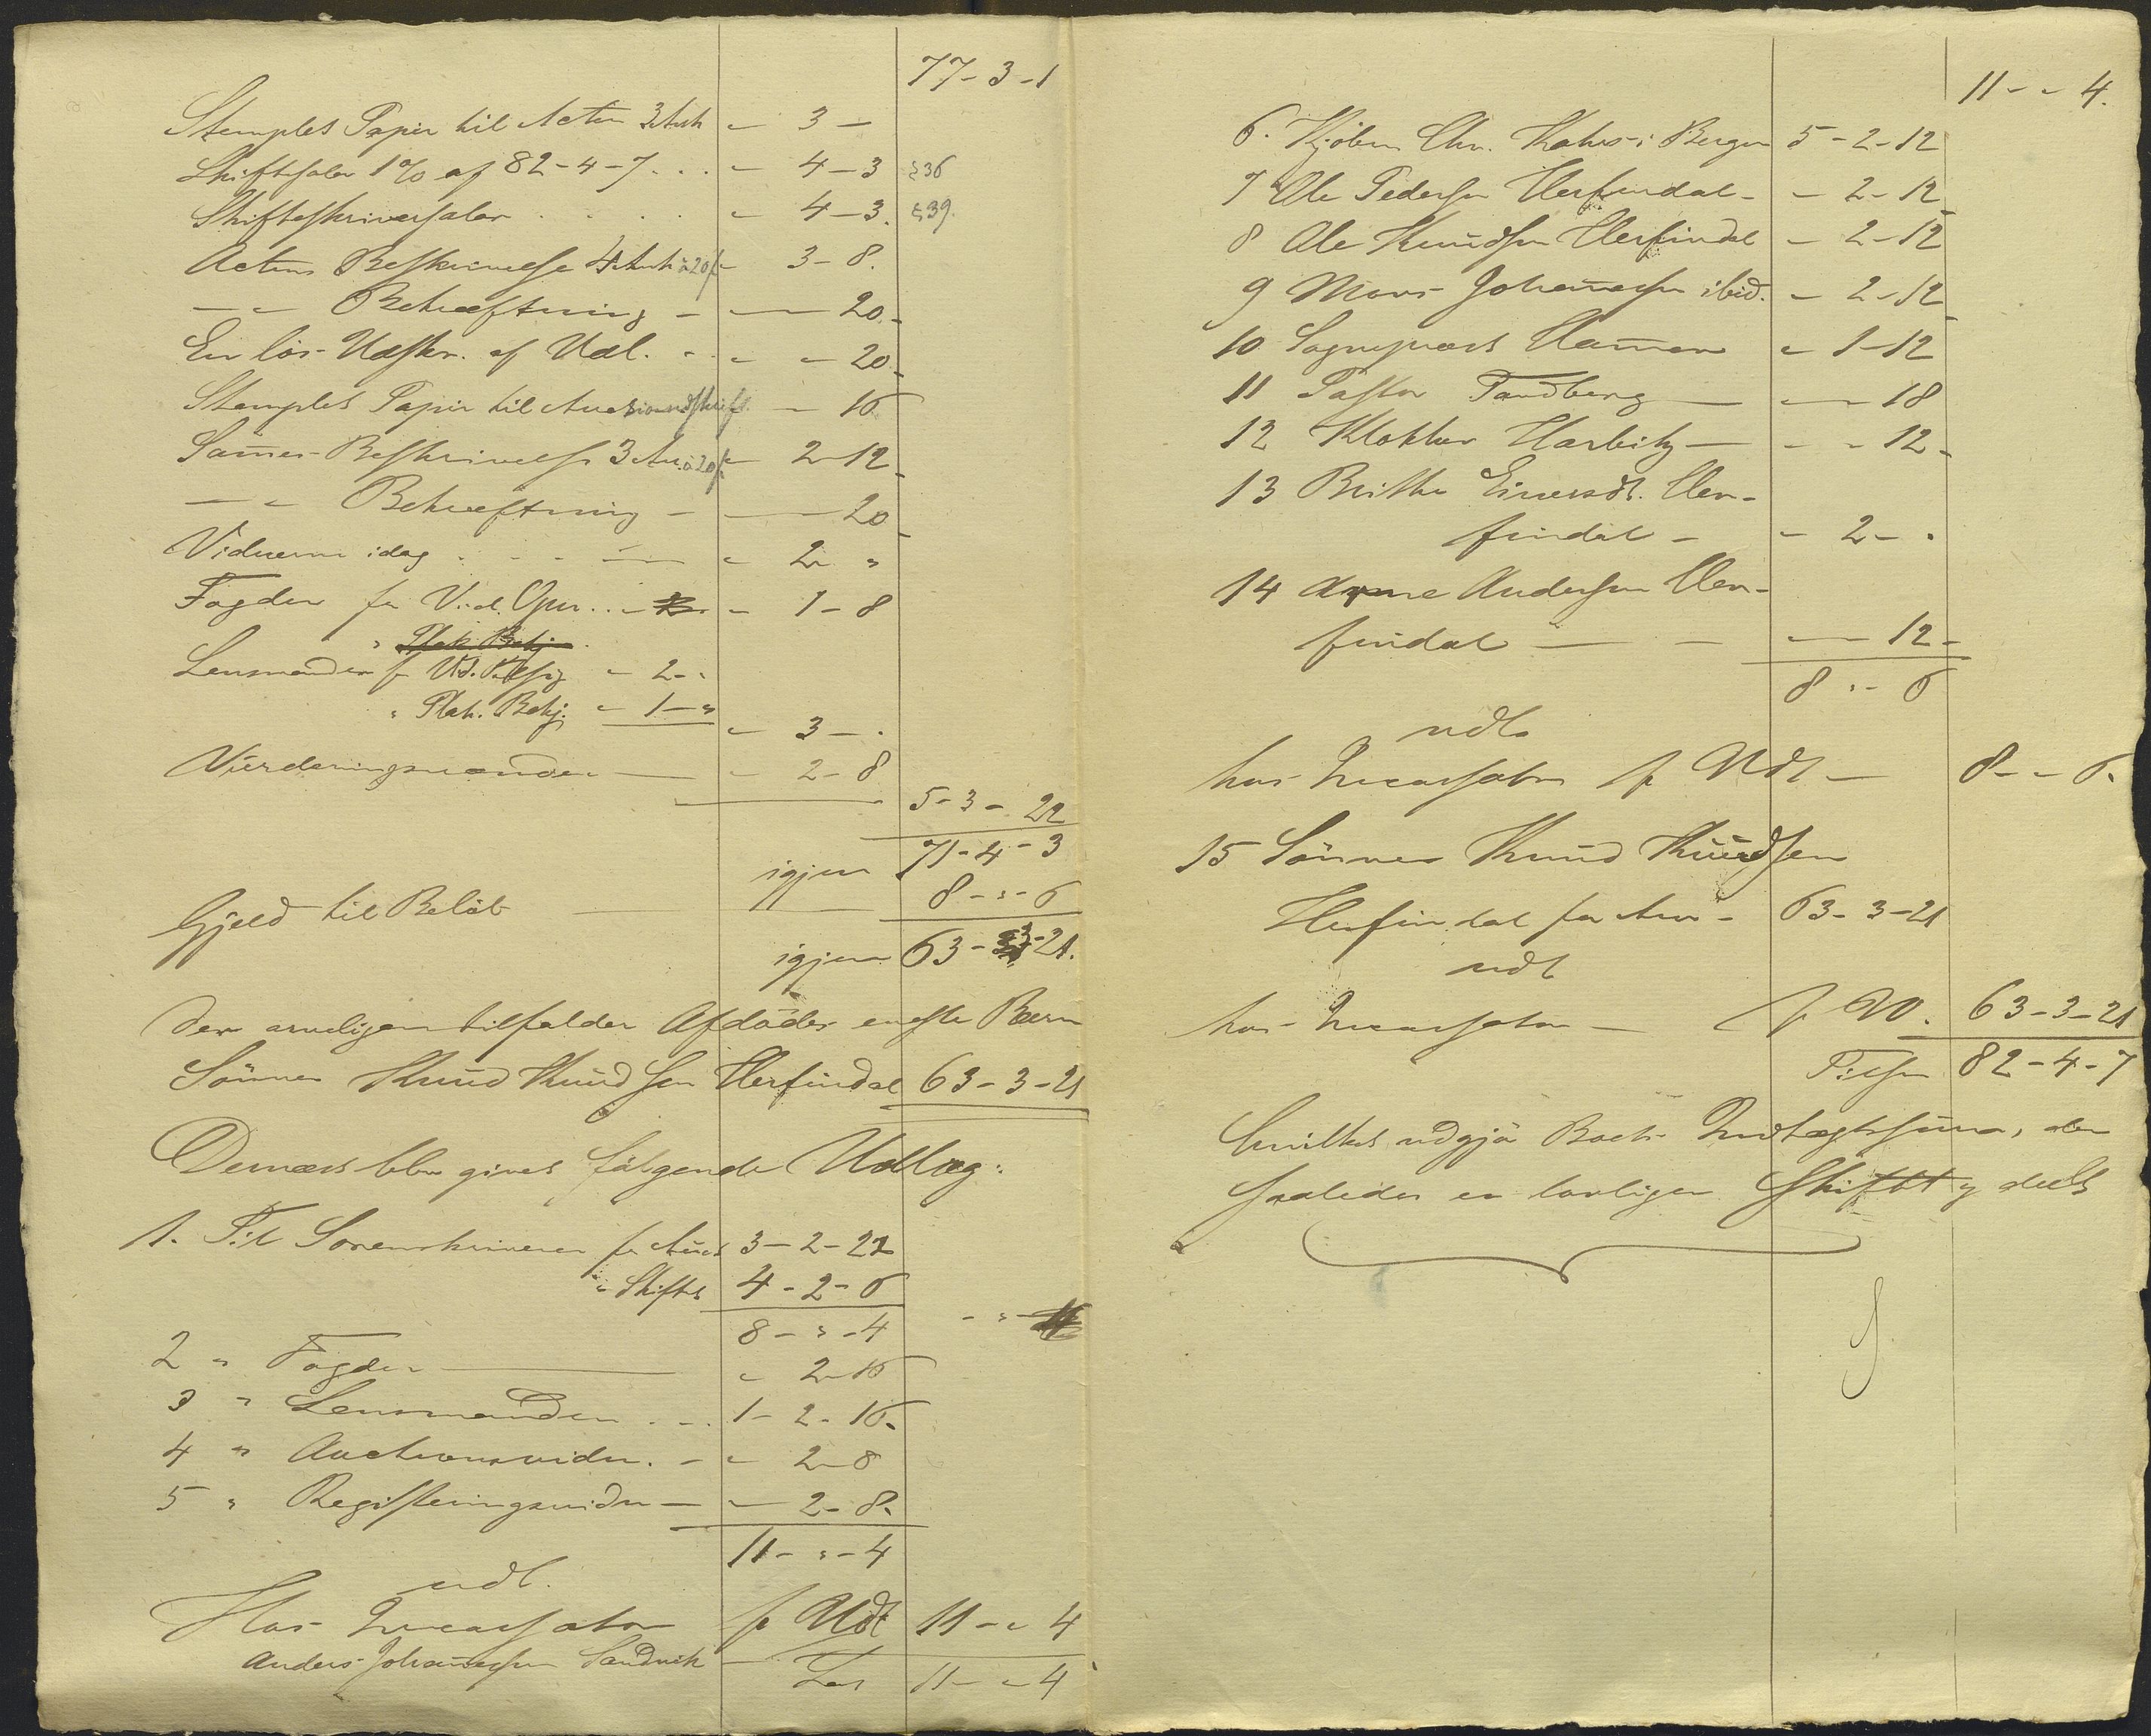 77-3-1
Stemplet Papir til Acten 3 Ark - 3 -
Skiftesalær 1% af 82-4-7 . . . - 4-3 §36
Skifteskriversalær . . . . - 4-3. §39.
Actens Beskrivelse 4 Ark à 20 f - 3-8.
— „ Bekræftning - — 20.-
En løs Udskr. af Udl. - . „ - 20-
Stemplet Papir til Auctionsudskrift - 16
Sammes Beskrivelse 3 Ark à 20 f - 2-12-
— „ Bekræftning - — 20-
Vidnerne idag . . . . - 2- „
Fogden for Vid. Opn . . - 1-8
„ Plak. Bekj.
Lensmanden f Vid. - 2- „
„ Plak. Bekj. - 1- „
- 3- .
Vurderingsmænden — - 2-8
5-3-22
igjen 71-4-3
Gjeld til Beløb — 8- „-6
igjen 63-3-21.
der arveligen tilfalder Afdødes eneste Barn
Sønnen Knud Knudsen Herfindal 63-3-21
Dernæst blev givet følgende Udlæg:
1. Til Sorenskriveren for Auct 3-2-22
„ Skiftet 4-2-6
8- „-4
2 „ Fogden — „ 2-16
3 „ Lensmanden . - . 1-2-16-
4 „ Auctionsvidn. - „ 2-8
5 „ Registeringsvidn — - 2-8-
11- „-4
udl.
Hos Incassator f Udl 11- „ 4
Anders Johannesen Sandvik — Lat 11- „ 4
11- „ 4.
6. Kjøbm Chr. Kahrs i Bergen 5-2-12
7 Ole Pedersen Herfindal - - 2-12-
8 Ole Knudsen Herfindal - 2-12
9 Mons Johannesen ibid. - 2-12-
10 Sognepræst Hammer „ 1-12
11 Pastor Tandberg — — 18
12 Klokker Harbitz — - „ 12-
13 Brithe Einersdt. Her-
findal - - 2- .
14 Arne Andersen Her-
findal — - — 12-
8 „- 6
udl.
hos Incassator f Udl — 8- „ 6.
15 Sønnen Knud Knudsen
Herfindal for Arv - 63-3-21
udl
hos Incassator — f Ud. 63-3-21
Tilsm 82-4-7
hvilket udgjør Boets Indtægtssum, der
saaledes er lovligen skiftet og deelt